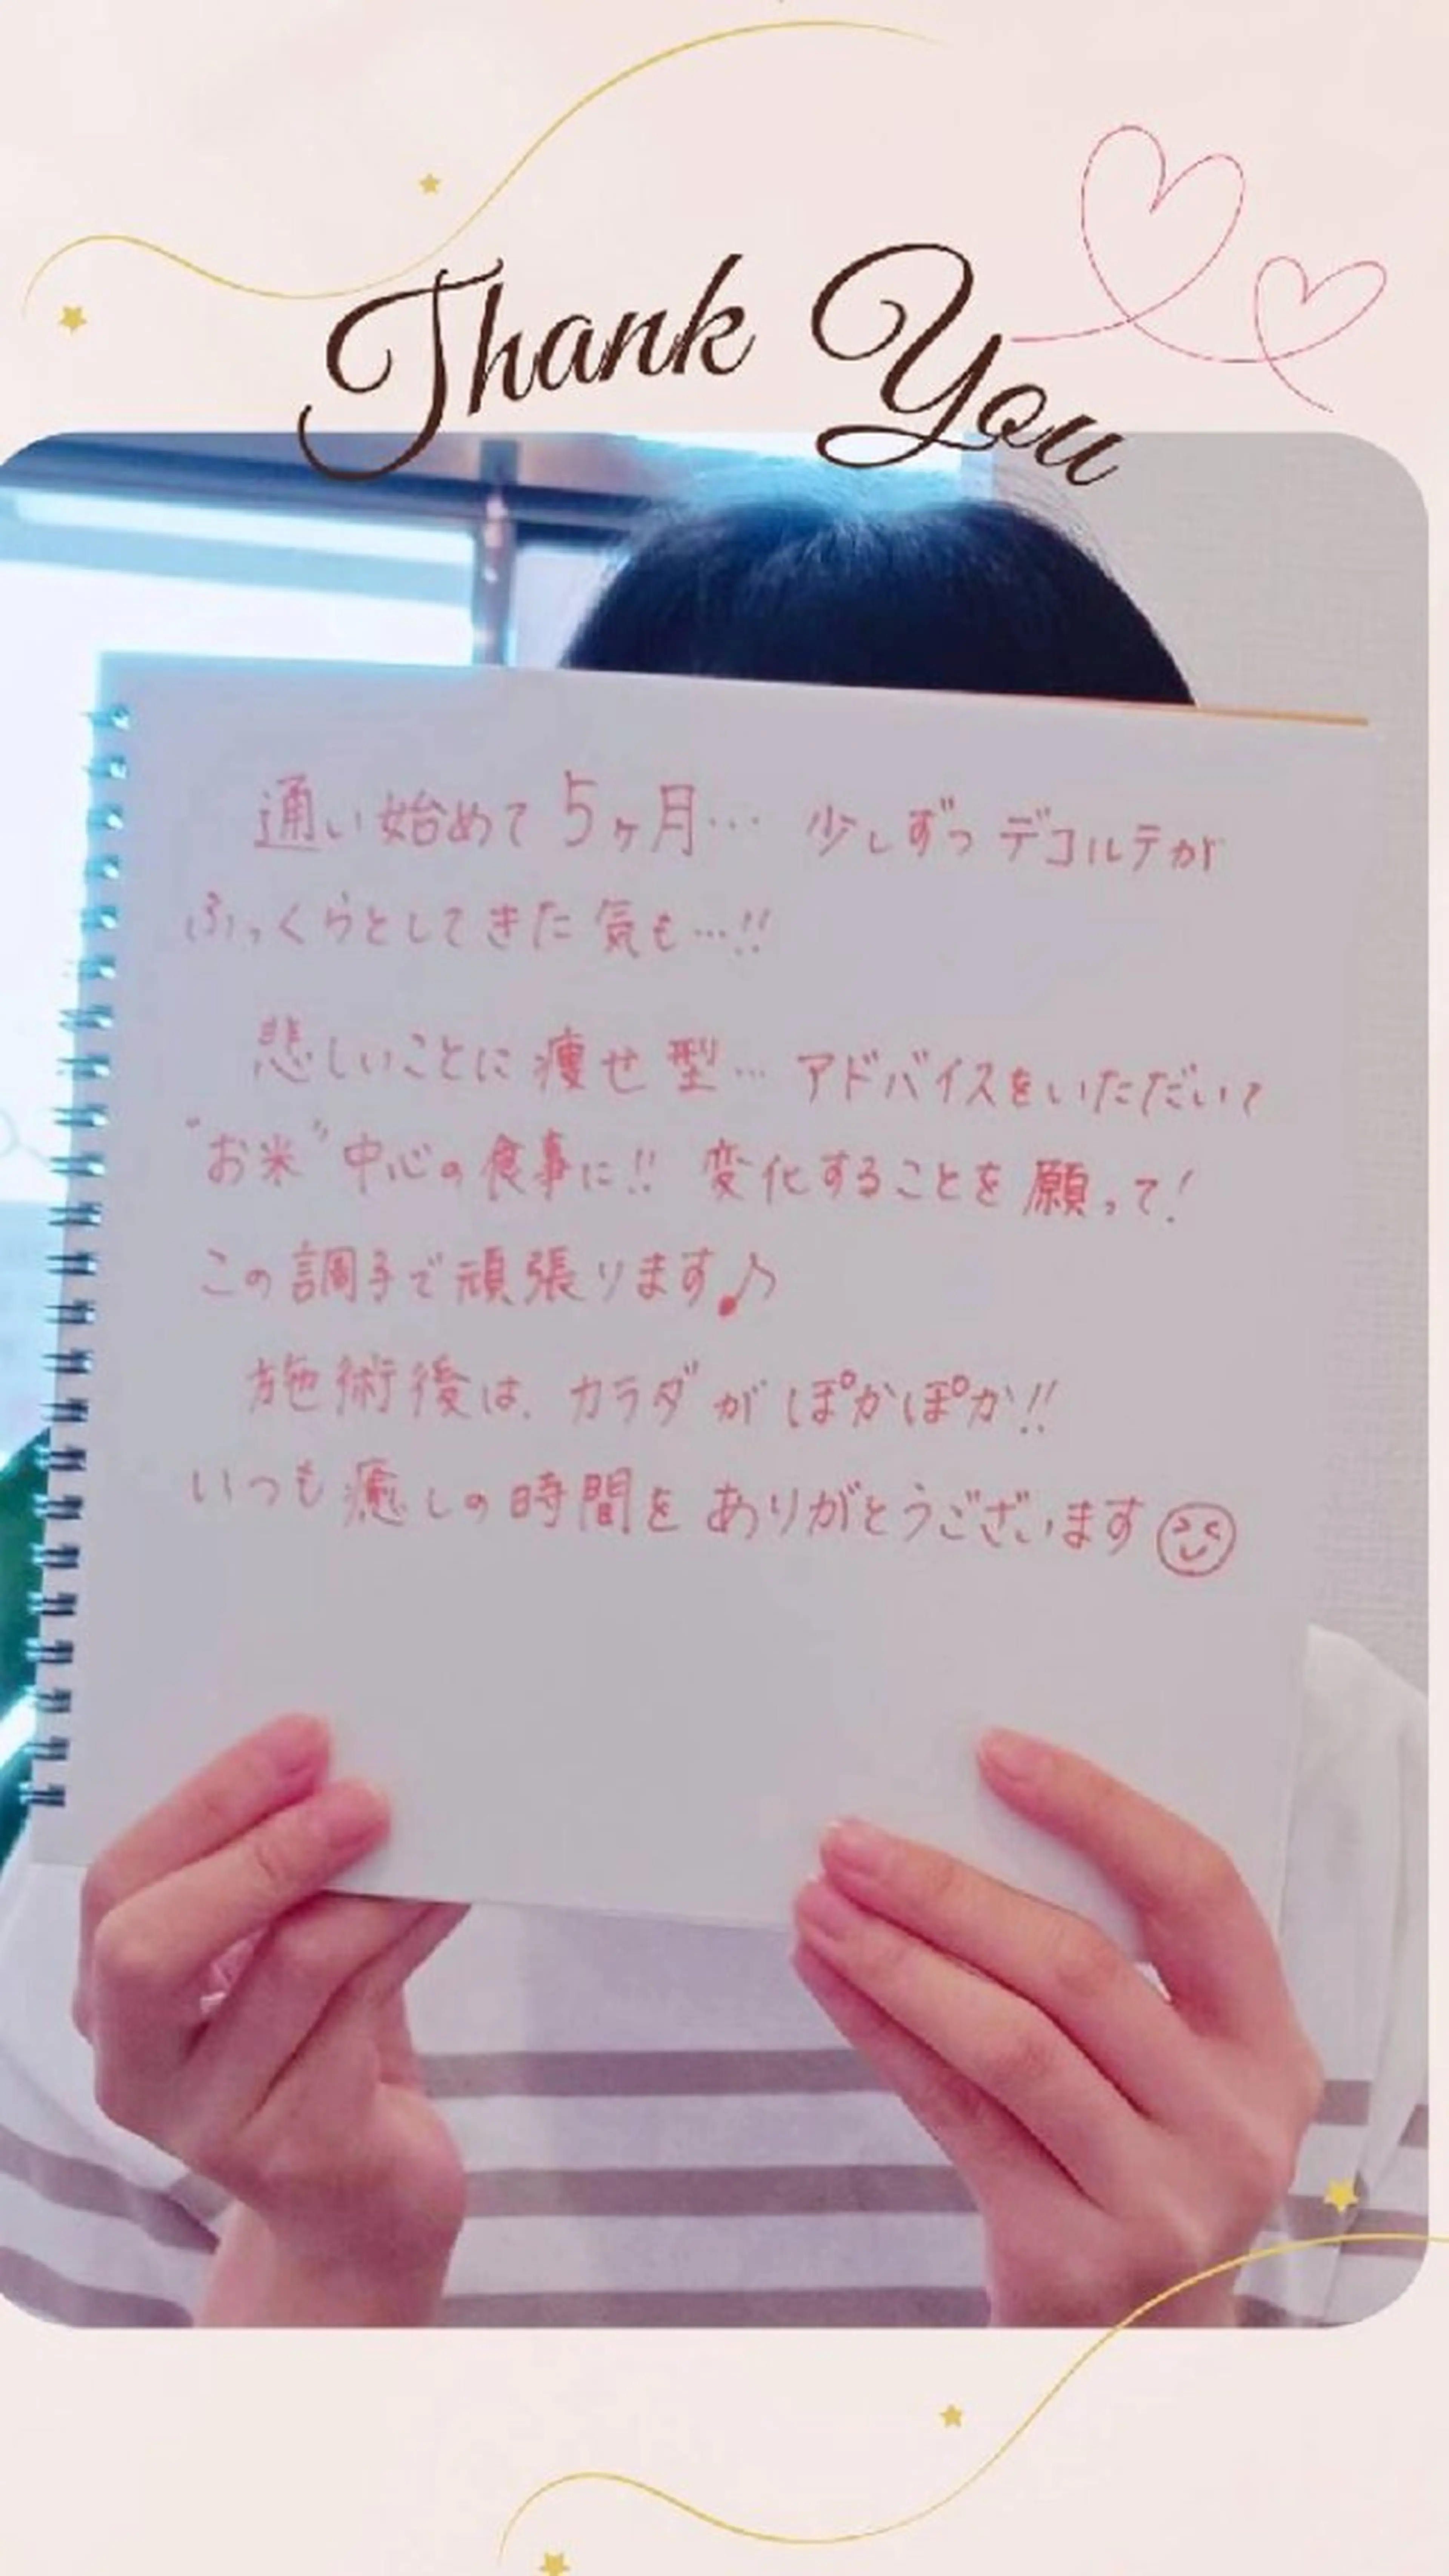 Thank You
通い始めて5ヶ月… 少しずつ デコルテが
ふっくらとしてきた気も…!!
悲しいことに痩せ型… アドバイスをいただいて
"お米"中心の食事に!! 変化することを願って!
この調子で頑張ります♪
施術後は、カラダが ぽかぽか!!
いつも癒しの時間を ありがとうございます